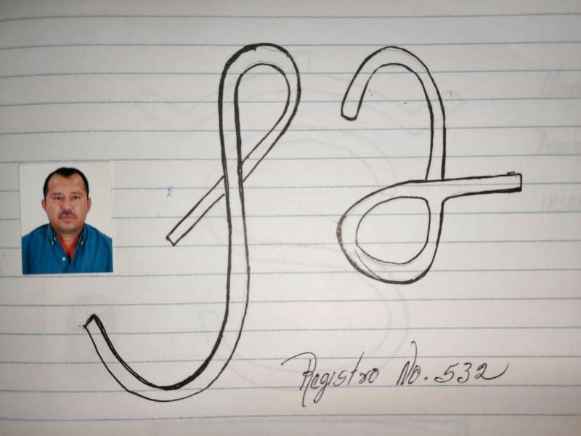 Registro No. 532